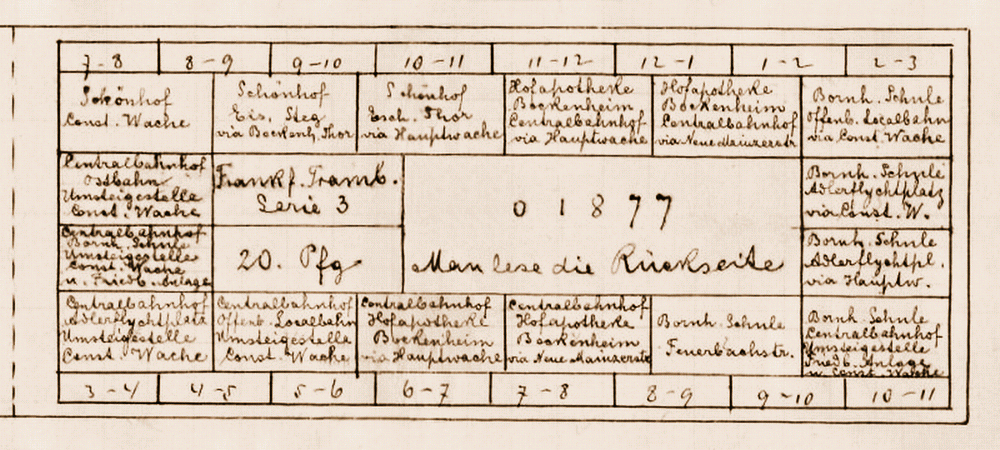 7-8 8-9 9-10 10-11 11-12 12-1 1-2 2-3
Schönhof
Const. Wache
Schönhof
Eis. Steg
via Bockenh. Thor
Schönhof
Esch. Thor
via Hauptwache
Hofapotheke
Bockenheim
Centralbahnhof
via Hauptwache
Hofapotheke
Bockenheim
Centralbahnhof
via Neue Mainzerstr.
Bornh. Schule
Offenb. Localbahn
via Const. Wache
Centralbahnhof
Ostbahn
Umsteigestelle
Const. Wache
Frankf. Tramb.
Serie 3
0 1 8 7 7
Bornh. Schule
Adlerflychtplatz
via Const. W.
Centralbahnhof
Bornh. Schule
Umsteigestelle
Const. Wache
u. Friedb. Anlage
20. Pfg
Man lese die Rückseite
Bornh. Schule
Adlerflychtpl.
via Hauptw.
Centralbahnhof
Adlerflychtplatz
Umsteigestelle
Const. Wache
Centralbahnhof
Offenb. Localbahn
Umsteigestelle
Const. Wache
Centralbahnhof
Hofapotheke
Bockenheim
via Hauptwache
Centralbahnhof
Hofapotheke
Bockenheim
via Neue Mainzerstr
Bornh. Schule
Feuerbachstr.
Bornh. Schule
Centralbahnhof
Umsteigestelle
Friedb. Anlage
u. Const. Wache
3-4 4-5 5-6 6-7 7-8 8-9 9-10 10-11